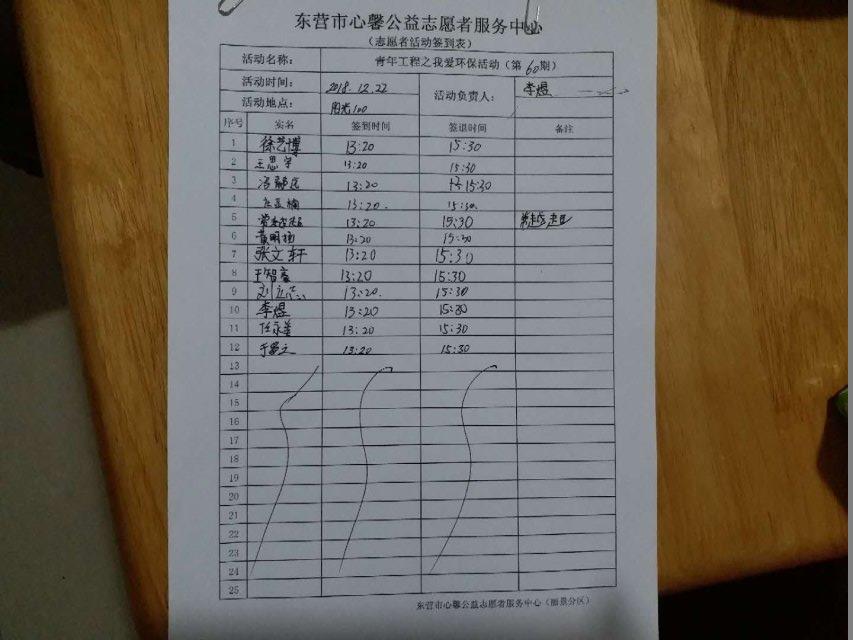 东营市心馨公益志愿者服务中心
（志愿者活动签到表）
活动名称： 青年工程之我爱环保活动（第60期）
活动时间： 2018.12.22 活动负责人： 李煜
活动地点： 阳光100
序号 实名 签到时间 签退时间 备注
1 徐艺博 13:20 15:30
2 王思宇 13:20 15:30
3 13:20 15:30
4 13:20. 15:30.
5 13:20 15:30 越超
6 黄明杨 13:20 15:30
7 张文轩 13:20 15:30
8 于智豪 13:20 15:30
9 刘立志 13:20. 15:30
10 李煜 13:20 15:30
11 任永美 13:20 15:30
12 13:20 15:30
13
14
15
16
17
18
19
20
21
22
23
24
25
东营市心馨公益志愿者服务中心（丽景分区）